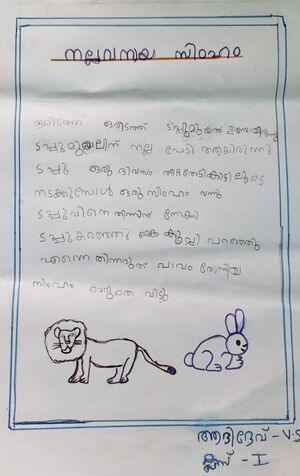 നല്ലവനായ സിംഹം
ഒരിടത്ത് ഒരിടത്ത് ടപ്പുമുയൽ ഉണ്ടായിരുന്നു
ടപ്പുമുയലിന് നല്ല പേടി ആയിരുന്നു
ടപ്പു ഒരു ദിവസം തീറ്റതേടികാട്ടിലൂടെ
നടക്കുമ്പോൾ ഒരു സിംഹം വന്നു
ടപ്പുവിനെ തിന്നാൻ നോക്കി
ടപ്പുകരഞ്ഞു കൈ കൂപ്പി പറഞ്ഞു
എന്നെ തിന്നരുത് പാവം തോന്നിയ
സിംഹം വെറുതെ വിട്ടു
ആദിദേവ് - V.S
ക്ലാസ് - I